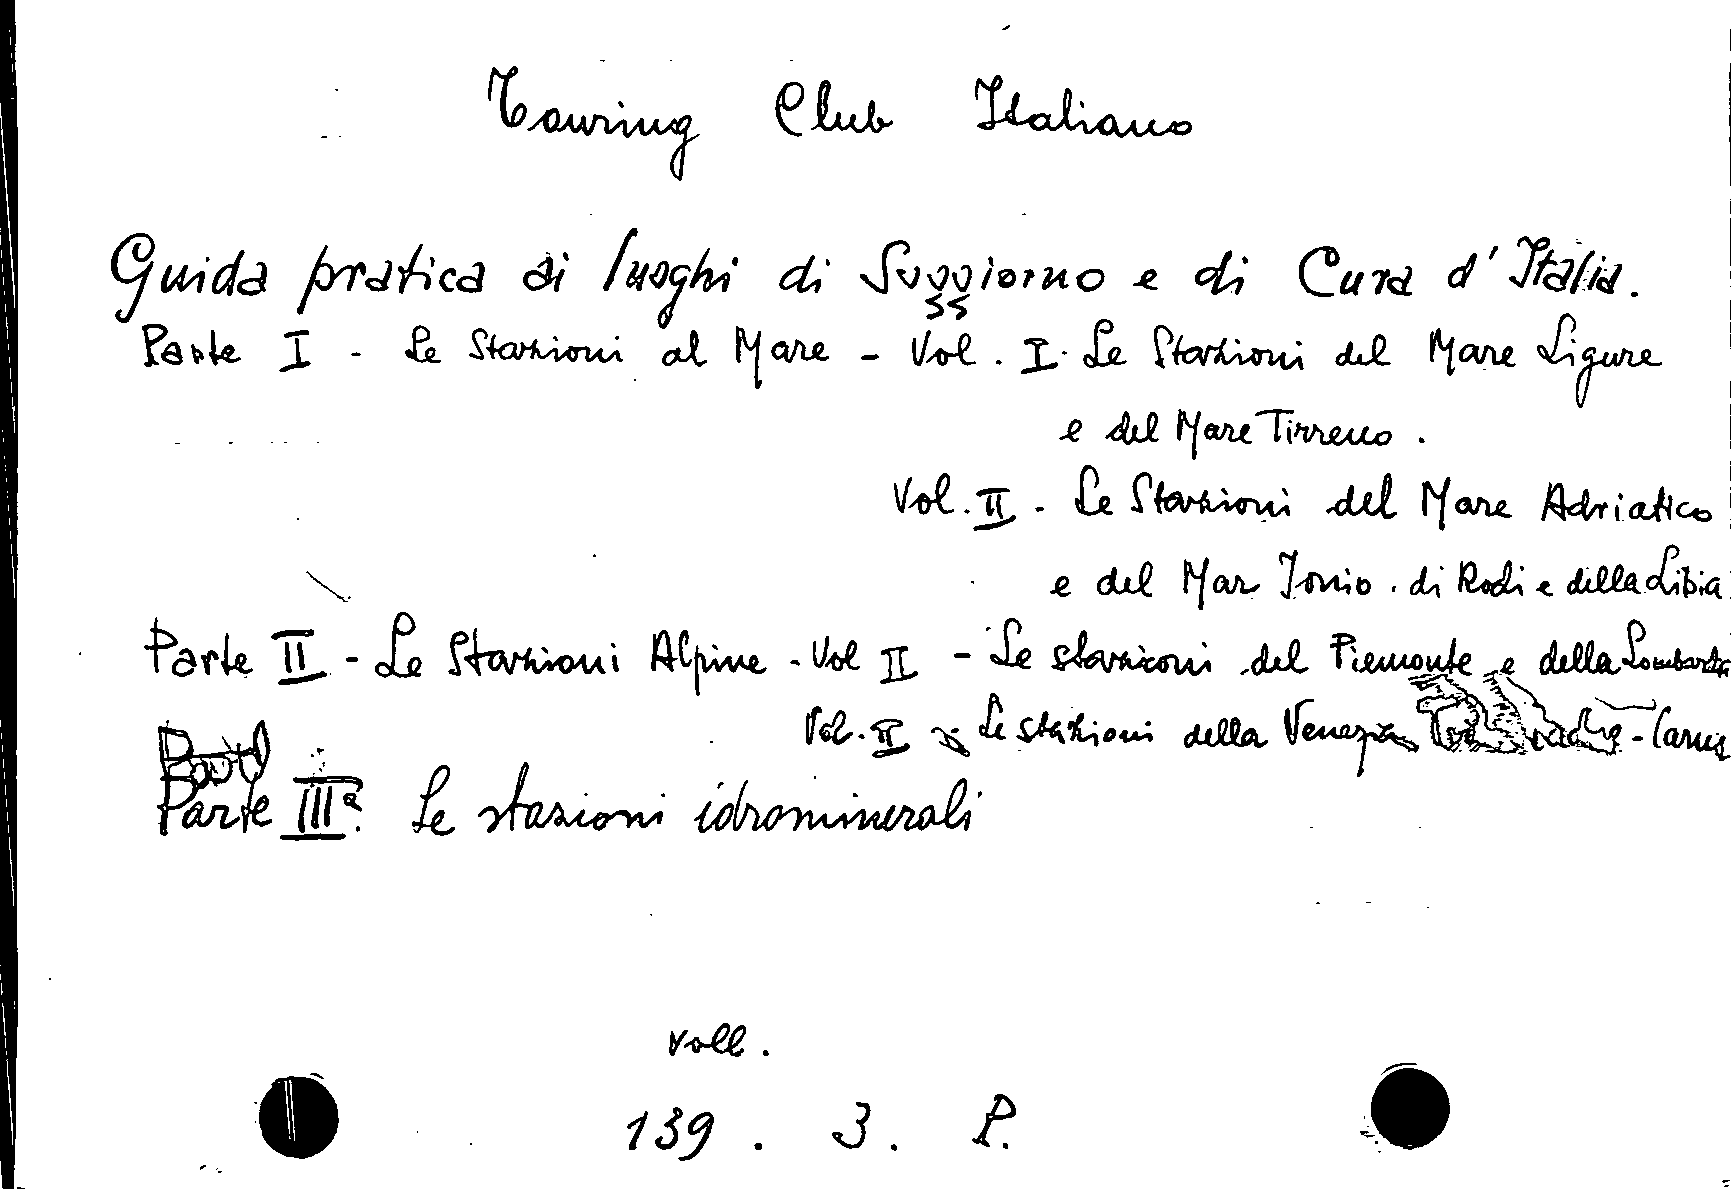 Touring Club Italiano
Guida pratica ai luoghi di Suggiorno e di Cura d'Italia.
Parte I - Le Stazioni al Mare - Vol. I. Le Stazioni del Mare Ligure
e del Mare Tirreno.
Vol. II - Le Stazioni del Mare Adriatico
e del Mar Jonio. di Rodi e della Libia
Parte II - Le Stazioni Alpine - Vol II - Le stazioni del Piemonte e della Lombardia
Vol. II Le stazioni della Venezia
Parte IIIª. Le stazioni idrominerali
voll.
139. 3. P.